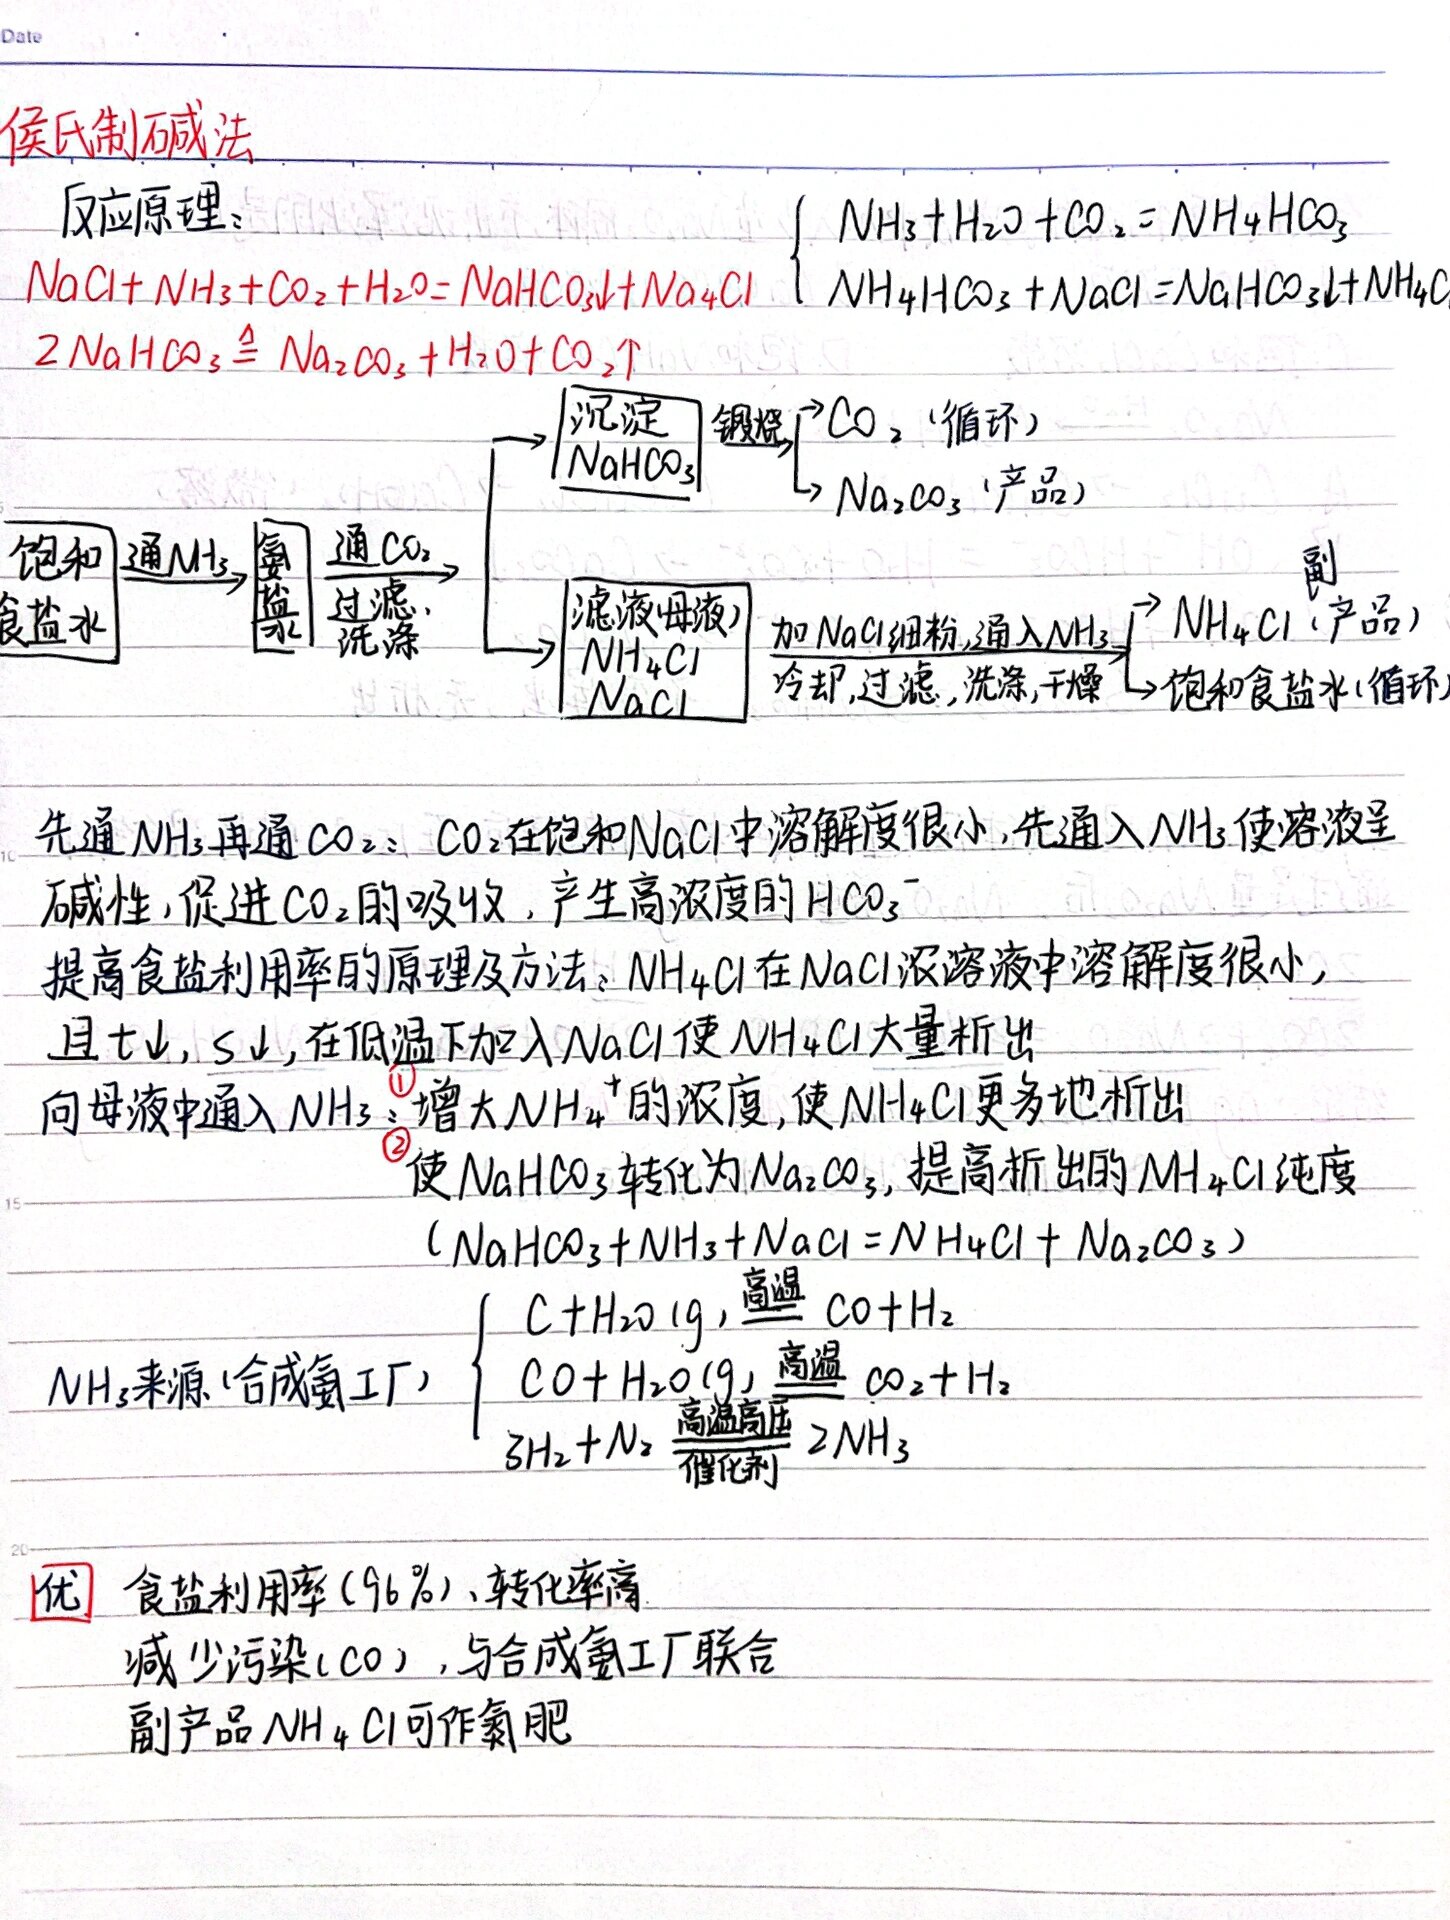 Date
侯氏制碱法
反应原理：
NaCl+NH₃+CO₂+H₂O=NaHCO₃↓+Na₄Cl
2NaHCO₃ ≜ Na₂CO₃+H₂O+CO₂↑
NH₃+H₂O+CO₂=NH₄HCO₃
NH₄HCO₃+NaCl=NaHCO₃↓+NH₄C
饱和
食盐水
通NH₃
氨盐水
通CO₂
过滤、
洗涤
沉淀
NaHCO₃
锻烧
CO₂（循环）
Na₂CO₃（产品）
滤液(母液)
NH₄Cl
NaCl
加NaCl细粉,通入NH₃
冷却,过滤,洗涤,干燥
副
NH₄Cl（产品）
饱和食盐水(循环)
先通NH₃再通CO₂：CO₂在饱和NaCl中溶解度很小,先通入NH₃使溶液呈
10
碱性,促进CO₂的吸收,产生高浓度的HCO₃⁻
提高食盐利用率的原理及方法：NH₄Cl在NaCl浓溶液中溶解度很小,
且t↓,S↓,在低温下加入NaCl使NH₄Cl大量析出
向母液中通入NH₃：①增大NH₄⁺的浓度,使NH₄Cl更多地析出
②使NaHCO₃转化为Na₂CO₃,提高析出的NH₄Cl纯度
15
（NaHCO₃+NH₃+NaCl=NH₄Cl+Na₂CO₃）
NH₃来源(合成氨工厂)
C+H₂O(g) 高温 CO+H₂
CO+H₂O(g) 高温 CO₂+H₂
3H₂+N₂ 高温高压 催化剂 2NH₃
20
优 食盐利用率(96%)、转化率高
减少污染(CO),与合成氨工厂联合
副产品NH₄Cl可作氮肥